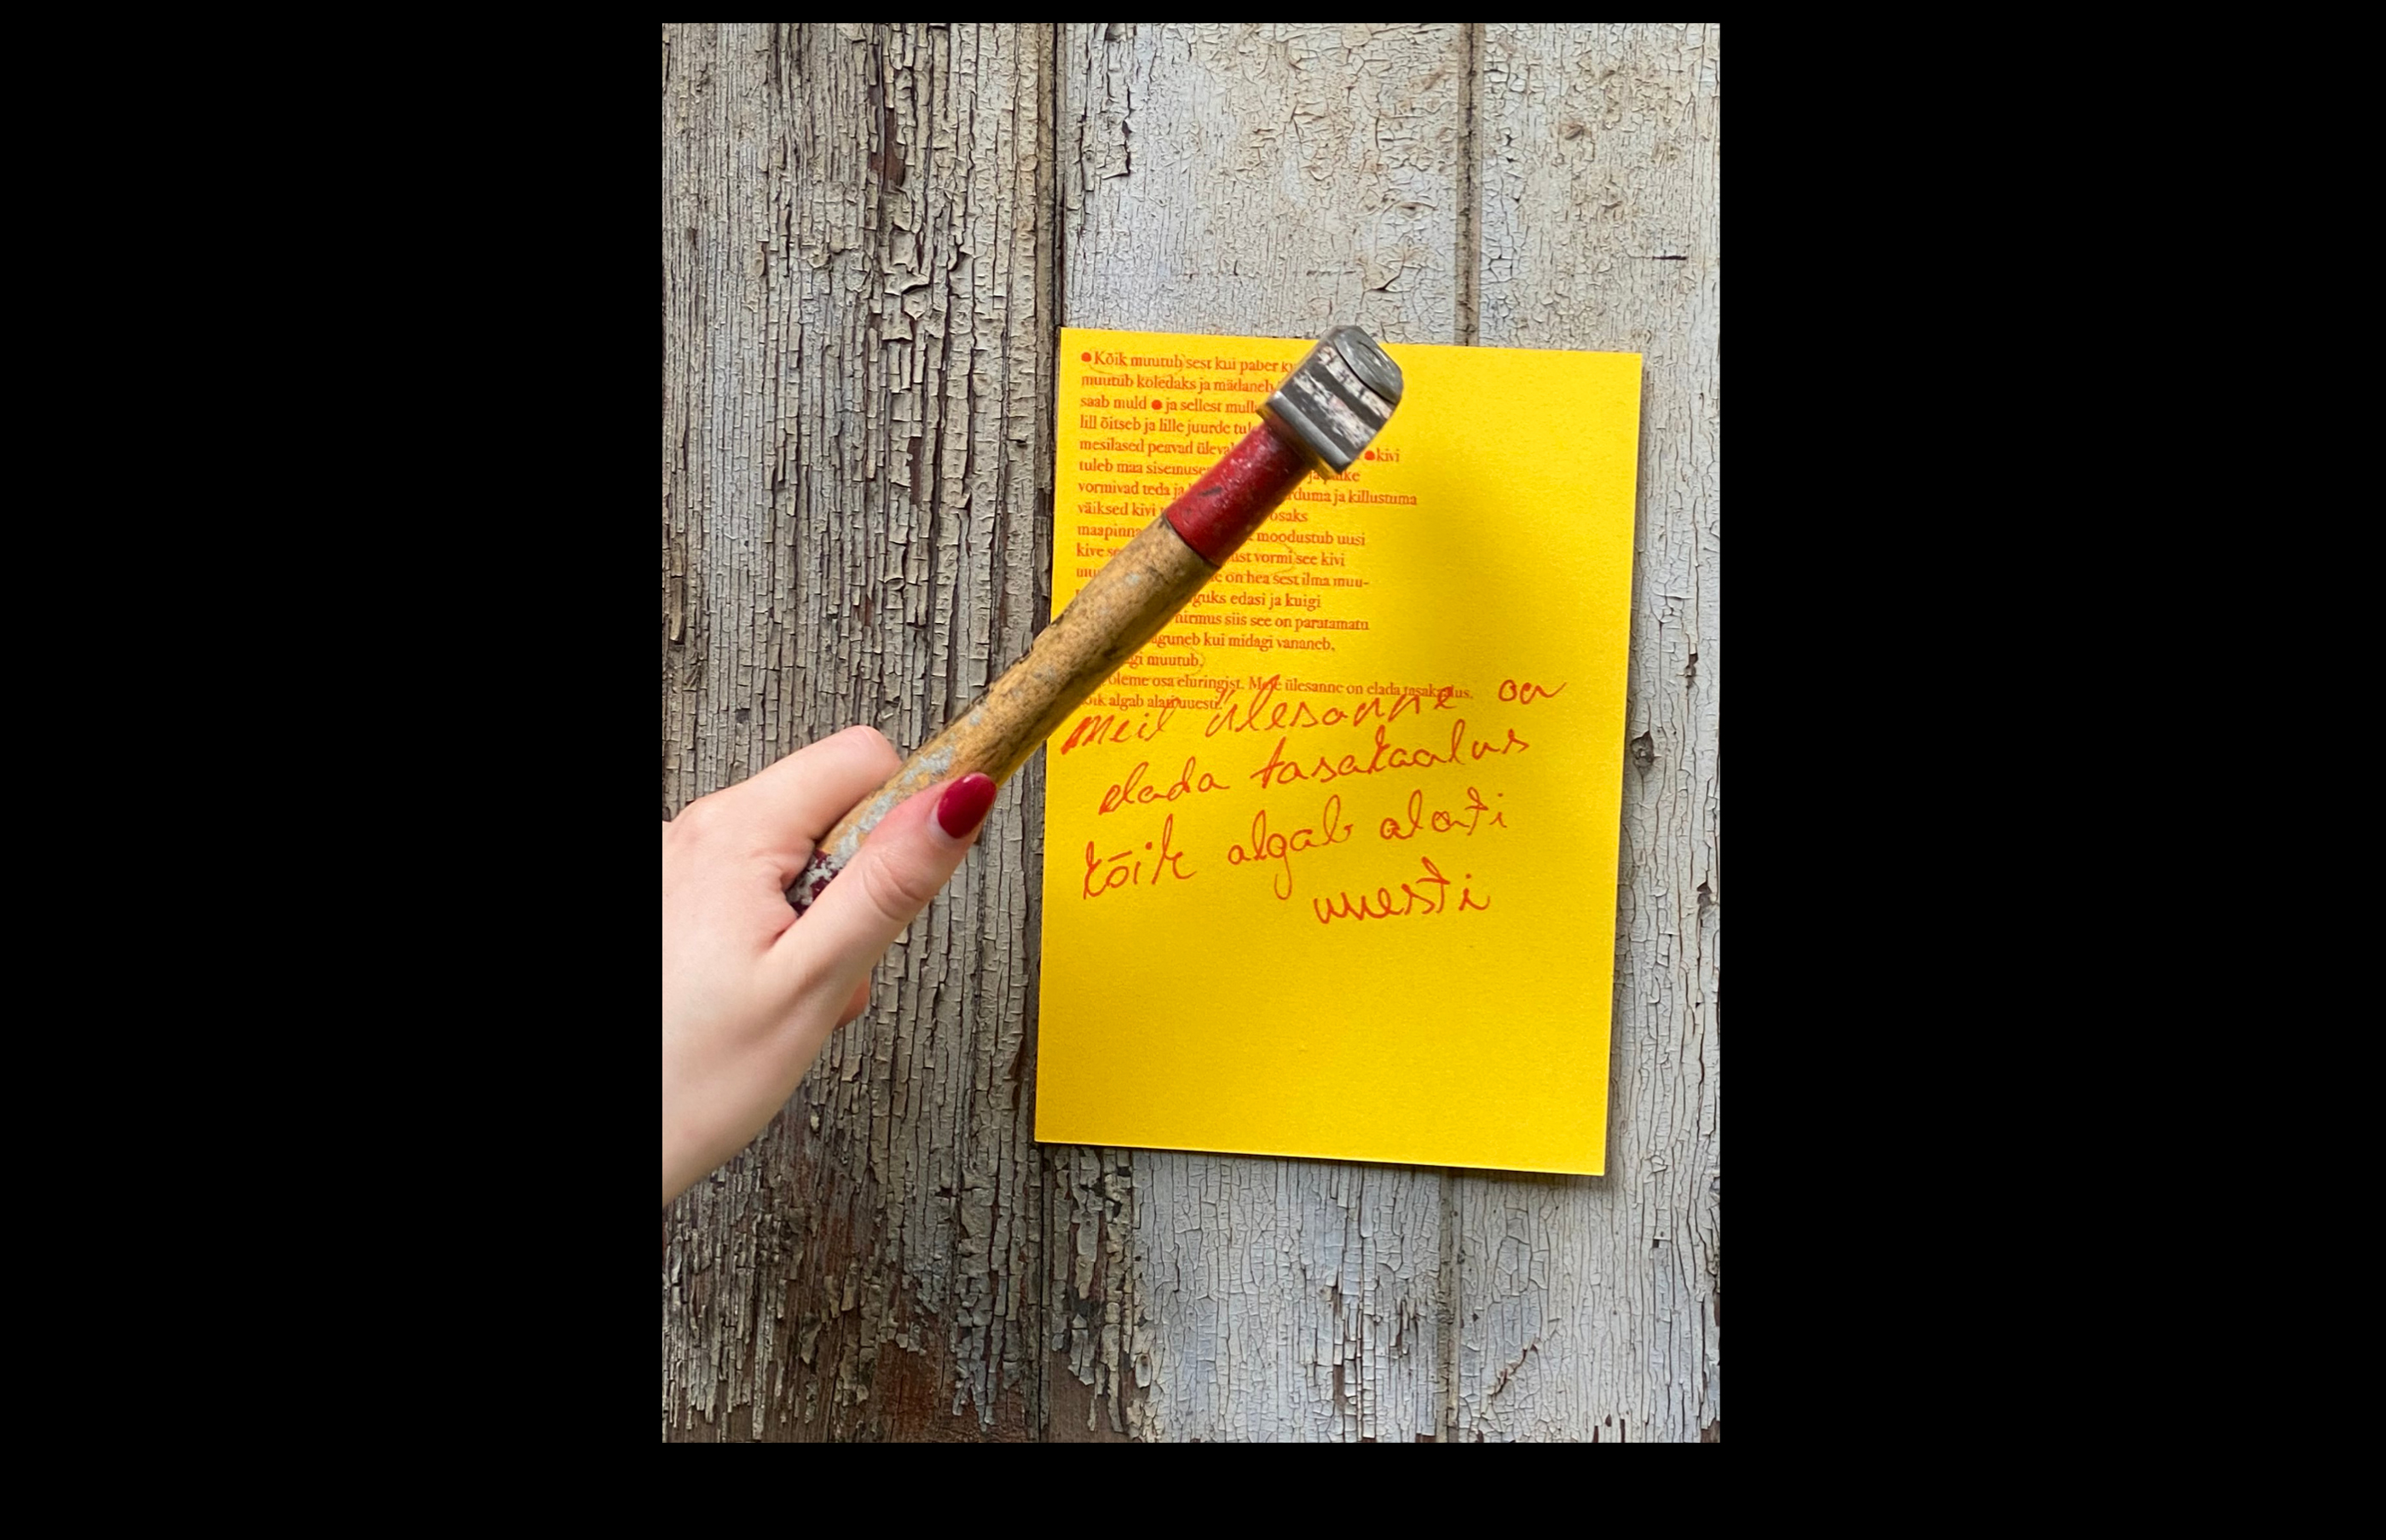 ● Kõik muutub sest kui paber
muutub koledaks ja mädaneb
saab muld ● ja sellest
lill õitseb ja lille juurde
mesilased peavad ● kivi
tuleb maa
vormivad teda ja killustuma
väiksed kivi osaks
moodustub uusi
kive vormi see kivi
on hea sest ilma muu-
edasi ja kuigi
siis see on paratamatu
kui midagi vananeb,
muutub.
oleme osa eluringist. Meie ülesanne on elada tasakaalus.
algab alati uuesti.
meil ülesanne on
elada tasakaalus
kõik algab alati
uuesti